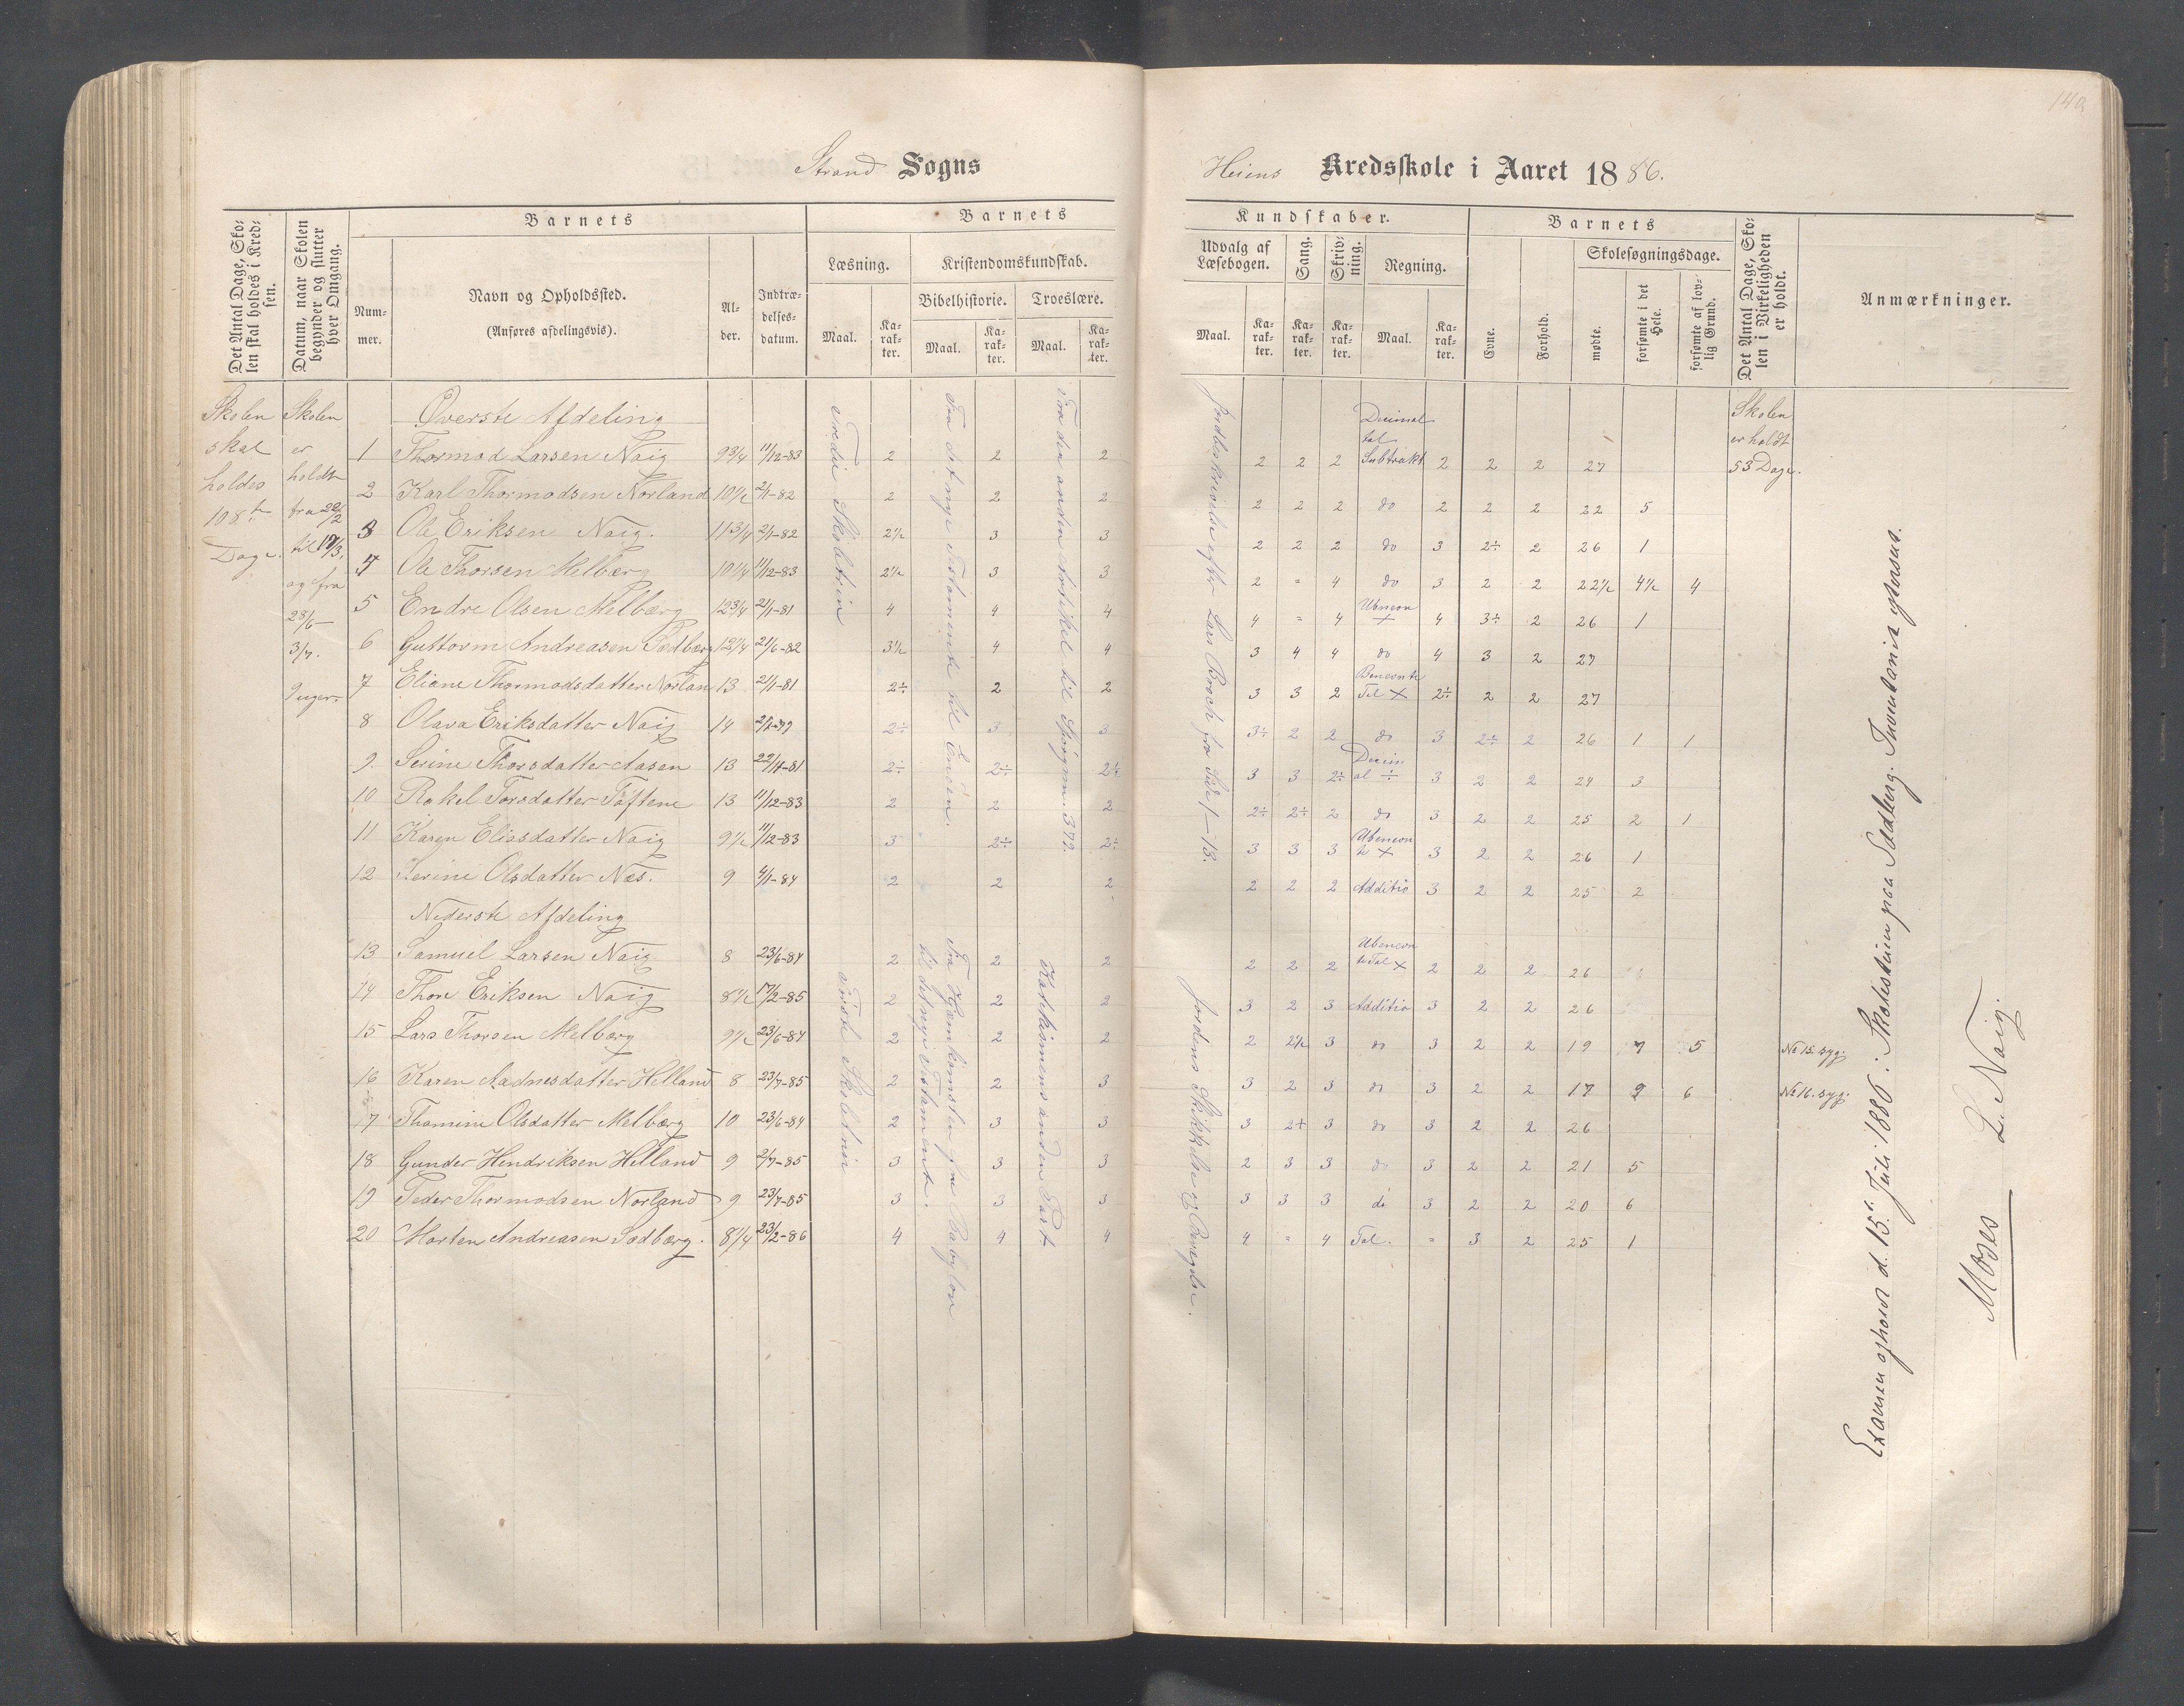 140
Strand Sogns
Heiens Kredsskole i Aaret 1886.
Det Antal Dage, Skolen skal holdes i Kredsen.
Datum, naar Skolen begynder og slutter hver Omgang.
Barnets
Nummer.
Navn og Opholdssted.
(Anføres afdelingsvis).
Alder.
Indtrædelsesdatum.
Barnets
Læsning.
Maal.
Karakter.
Kristendomskundskab.
Bibelhistorie.
Maal.
Karakter.
Troeslære.
Maal.
Karakter.
Kundskaber.
Udvalg af Læsebogen.
Maal.
Karakter.
Sang.
Karakter.
Skrivning.
Karakter.
Regning.
Maal.
Karakter.
Barnets
Evne.
Forhold.
Skolesøgningsdage.
mødte.
forsømte i det Hele.
forsømte af lovlig Grund.
Det Antal Dage, Skolen i Virkeligheden er holdt.
Anmærkninger.
Skolen skal holdes 108 Dage.
Skolen er holdt fra 22/2 til 19/3, og fra 23/6– 3/7.
9 uger.
Øverste Afdeling
1 Thormod Larsen Naig 9 3/4 11/12-83 2 2 2 2 2 2 Decimal tal Subtrakt 2 2 2 27
2 Karl Thormodsen Norland 10 1/2 2/1-82 2 2 2 2 2 2 do 2 2 2 22 5
3 Ole Eriksen Naig. 11 3/4 2/1-82 2 1/2 3 3 2 2 2 do 3 2÷ 2 26 1
4 Ole Thorsen Melbærg 10 1/4 11/12-83 2 1/2 3 3 2 " 4 do 3 2 2 22 1/2 4 1/2 4
5 Endre Olsen Melbærg 12 3/4 2/1-81 4 4 4 4 " 4 Ubneon × 4 3÷ 2 26 1
6 Guttorm Andreasen Sødbærg 12 1/4 21/6-82 3 1/2 4 4 3 4 4 do 4 3 2 27
7 Eliane Thormodsdatter Norlan 13 2/1-81 2÷ 2 2 3 3 2 Benevnte Tal × 2÷ 2 2 27
8 Olava Eriksdatter Naig 14 2÷ 3 3 3÷ 2 2 do 3 2÷ 2 26 1 1
9. Serine Thorsdatter Aasen 13 22/4-81 2÷ 2÷ 2÷ 3 3 2÷ Decimal ÷ 3 2 2 24 3
10 Rakel Torsdatter Tøftene 13 11/12-83 2 2 2 2÷ 2÷ 2 do 3 2 2 25 2 1
11 Karen Eliasdatter Naig 9 1/2 11/12-83 3 2÷ 2÷ 3 3 3 Ubeneon te × 3 2 2 26 1
12 Serine Olsdatter Næs. 9 4/1-84 2 2 2 2 2 2 Additio 3 2 2 25 2
Tredie Skoletrin
Fra det nye Testamente til Enden.
Fra den anden Artikel til Spørgsm. 377.
Jordbeskrivelse efter Lars Broch fra Side 1–13.
Skolen er holdt 53 Dage.
Nederste Afdeling
13 Samuel Larsen Naig 8 23/6-84 2 2 2 2 2 2 Ubeneon te Tal × 2 2 2 26
14 Thore Eriksen Naig 8 1/2 17/2-85 2 2 2 3 2 3 Additio 3 2 2 26
15 Lars Thorsen Melbærg 9 1/2 23/6-84 2 2 2 2 2 1/2 3 do 3 2 2 19 7 5 No 15. syg.
16 Karen Aadnesdatter Helland 8 23/7-85 2 2 3 3 2 3 do 3 2 2 17 9 6 No 16. syg.
17 Thomine Olsdatter Melbærg 10 23/6-84 2 3 3 3 2+ 3 do 3 2 2 26
18 Gunder Hendriksen Helland 9 2/7-85 3 3 3 2 3 3 do 3 2 2 21 5
19 Peder Thormodsen Norland 9 23/7-85 3 3 3 3 3 3 do 3 2 2 20 6
20 Morten Andreasen Sødbærg. 8 1/4 23/2-86 4 4 4 4 " 4 Tal. " 3 2 25 1
Første Skoletrin
Fra Hjemkomsten fra Babylon
til det nye Testamente.
Katekismens anden Part
Jordens Skikkelse og Bevægelse.
Examen afholdt d. 15de Juli 1886 : paa Sødberg.
Moses L. Naig.